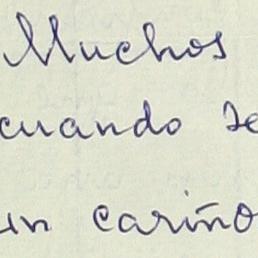 Muchos
cuando se
un cariño